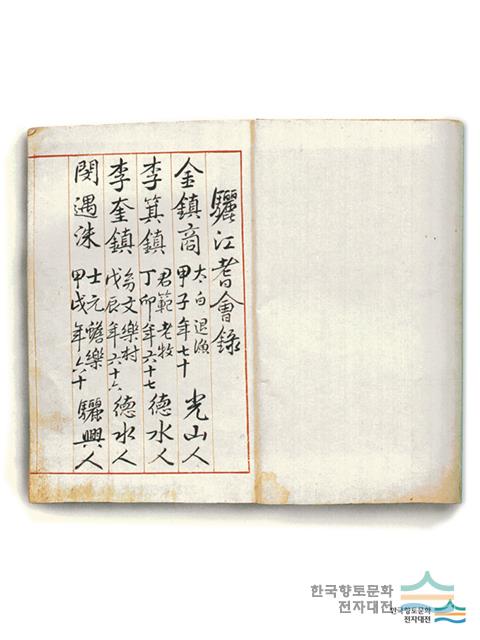 驪江耆會錄
金鎮商 太白 退漁 甲子年七十 光山人
李箕鎮 君範 老牧 丁卯年六十七 德水人
李奎鎮 文 樂村 戊辰年六十六 德水人
閔遇洙 士元 蟾樂 甲戌年六十 驪興人
한국향토문화
전자대전
한국향토문화
전자대전